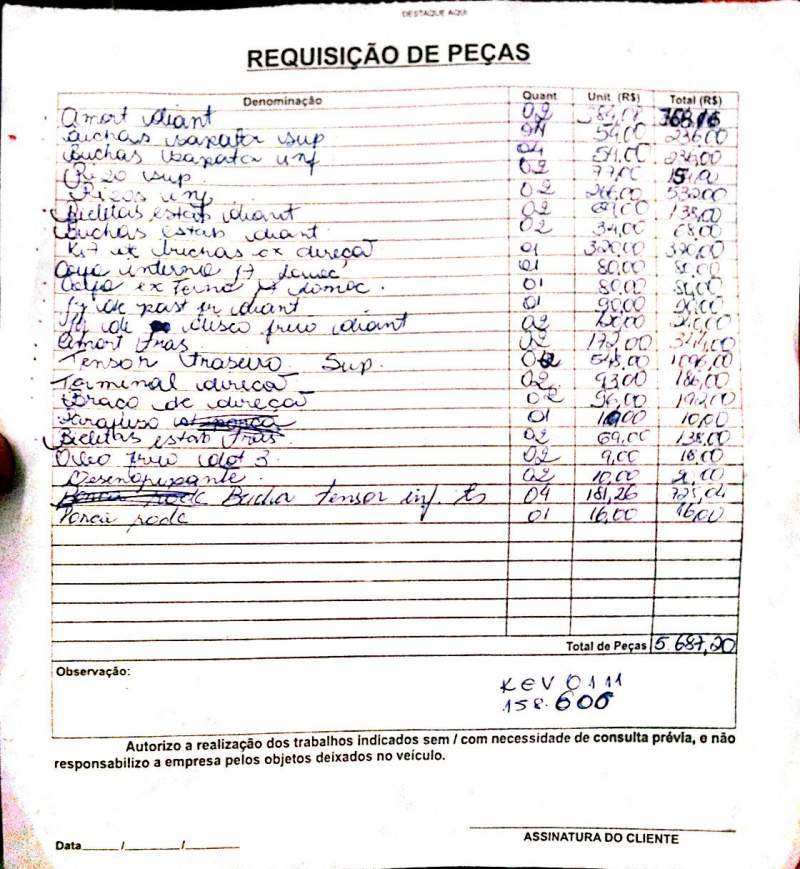 DESTAQUE AQUI
REQUISIÇÃO DE PEÇAS
Denominação Quant Unit (R$) Total (R$)
Amort diant 02 384,08 768,16
Buchas sup 04 59,00 236,00
Buchas inf 04 59,00 236,00
sup 02 77,00 154,00
inf 02 266,00 532,00
Bieletas estab diant 02 69,00 138,00
Buchas estab diant 02 34,00 68,00
Kit buchas cx direçã 01 320,00 320,00
Coifa interna 01 80,00 80,00
Coifa externa 01 80,00 80,00
Jg de past fr diant 01 90,00 90,00
Jg de disco freio diant 02
Amort tras 02 172,00 344,00
Tensor traseiro Sup. 02 548,00 1096,00
Terminal direçã 02 93,00 186,00
Braço de direçã 02 96,00 192,00
Parafuso 01 10,00 10,00
Bieletas estab tras 02 69,00 138,00
Oleo freio dot 3 02 9,00 18,00
Desengripante 02 10,00
Bucha tensor inf. ts 04 181,26 725,04
Porca roda 01 16,00 16,00
Total de Peças 5.687,20
Observação:
KEV 0111
158.606
Autorizo a realização dos trabalhos indicados sem / com necessidade de consulta prévia, e não
responsabilizo a empresa pelos objetos deixados no veículo.
Data / /
ASSINATURA DO CLIENTE